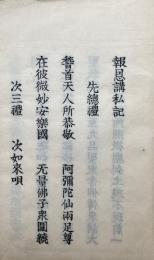 報恩講私記
先總禮
稽首天人所恭敬　阿彌陀仙兩足尊
在彼微妙安樂國　无量佛子衆圍繞
次三禮　次如來唄